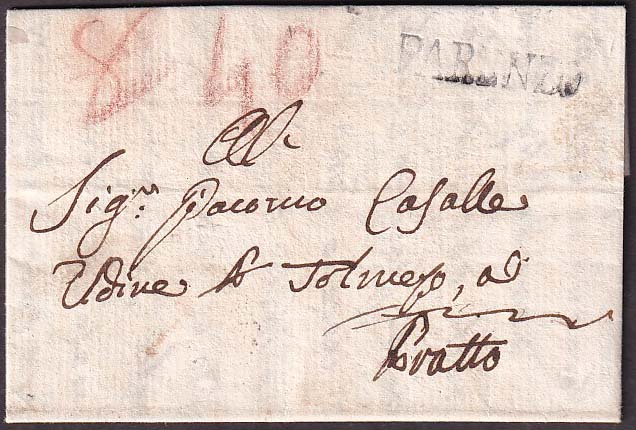 8 40
PARENZO
All.
Sig.r Giacomo Casalle
Udine p Tolmezo, ad
Pratto